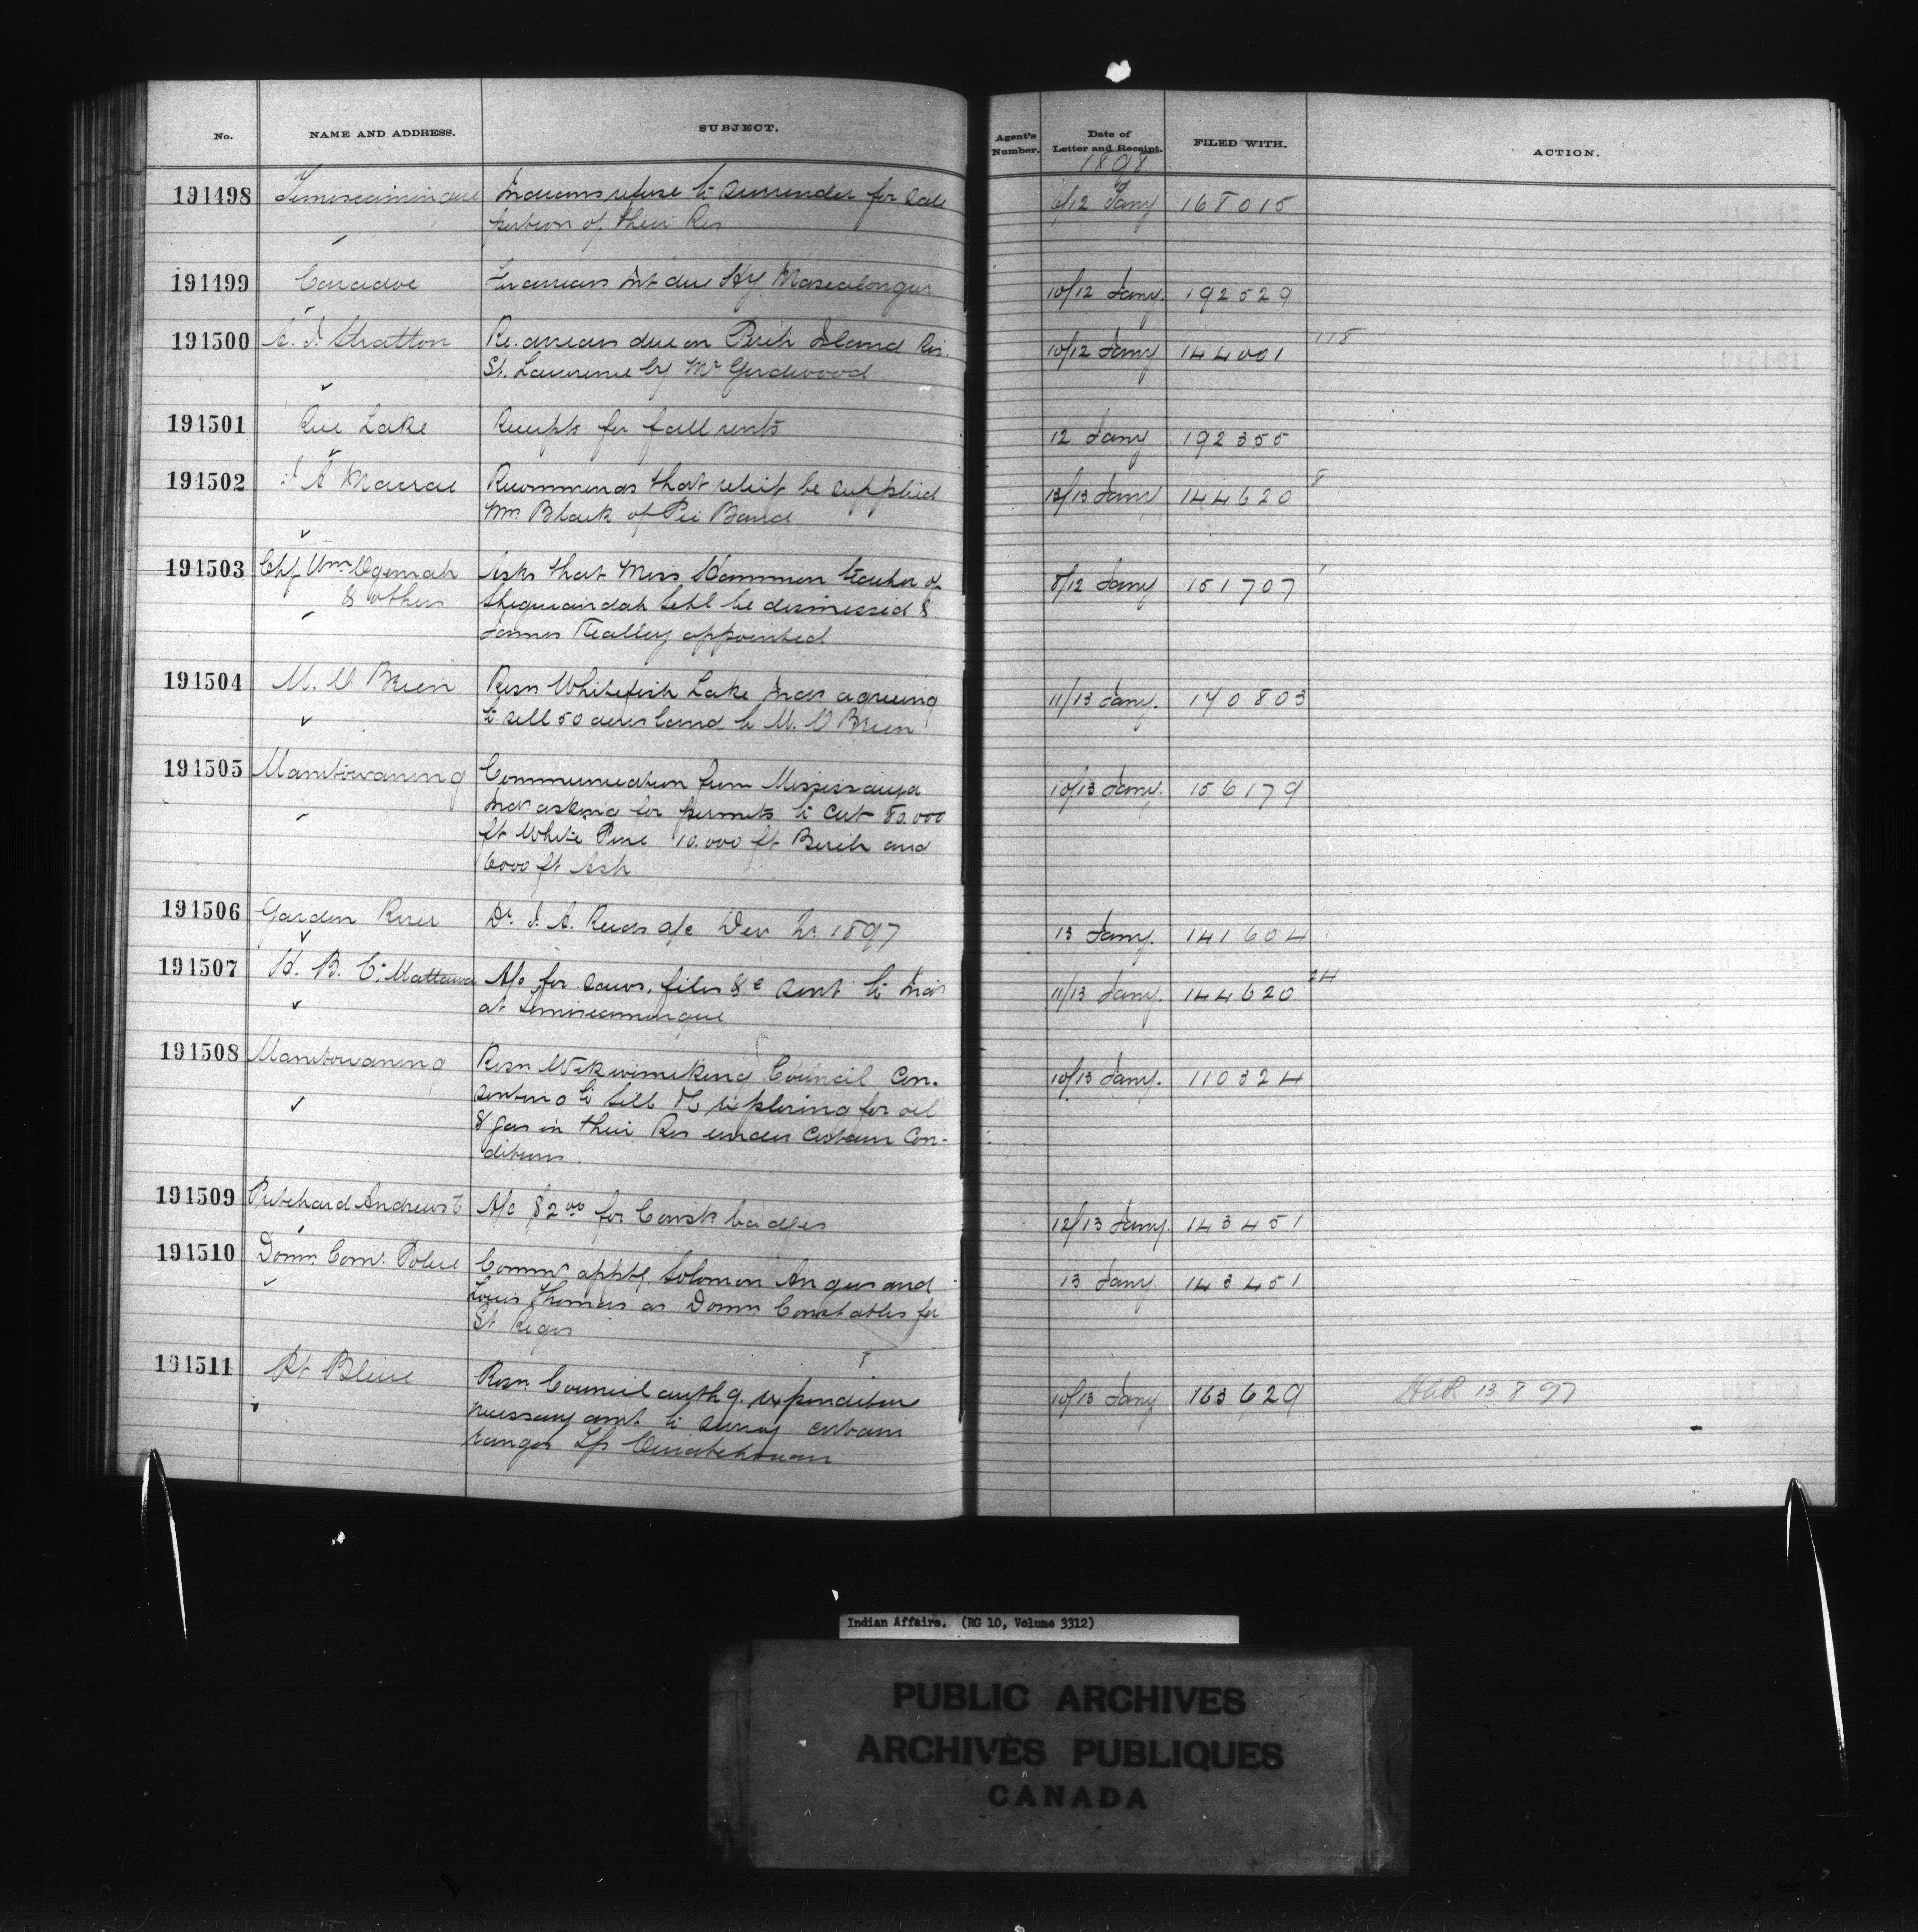 No. NAME AND ADDRESS. SUBJECT. Agent's Number. Date of Letter and Receipt. FILED WITH. ACTION.
1898
191498 Temiscamingue Indians refuse to surrender for sale 6/12 Jany 168015
portion of their Res
191499 Caradoc Int due 10/12 Jany. 192529
191500 Stratton Re. arrears due on Island Riv. 10/12 Jany 144001 118
St. Lawrence by Mr Girdwood
191501 Rice Lake Receipts for fall rents 12 Jany 192355
191502 J A Macrae Recommends that relief be supplied 12/13 Jany 144620 8
Wm. Black of Pic Band
191503 Chf Wm Ogemah Asks that Miss teacher of 8/12 Jany 151707
& others Sheguiandah Schl be dismissed &
James appointed
191504 M. O Brien Resn Whitefish Lake Inds agreeing 11/13 Jany. 170803
to sell 50 acres land to M. O Brien
191505 Manitowaning Communication from Mississauga 10/13 Jany. 156179
Inds asking for permits to cut 80.000
ft White Pine 10.000 ft Birch and
6000 ft Ash
191506 Garden River Dr. J. A. Reids a/c Dec Qr. 1897 13 Jany. 141604
191507 H. B. Co. Mattawa A/c for saws, files &c sent to Inds 11/13 Jany. 144620 24
at Temiscamingue
191508 Manitowaning Resn Wikwimikong Council con- 10/13 Jany. 110324
exploring for oil
& gas in their Res under certain con-
ditions.
191509 Pritchard Andrews C A/c $2.00 for Const. badges 12/13 Jany. 143451
191510 Domn. Com. Police Commn apptg. Solomon Angus and 13 Jany. 143451
Louis Thomas as Domn Constables for
St Regis
191511 Pt Bleue Resn. Council authg. expenditure 10/13 Jany 163629 13 8 97
necessary amt. to survey certain
ranges Tp Ouiatchouan
Indian Affairs. (RG 10, Volume 3312)
PUBLIC ARCHIVES
ARCHIVES PUBLIQUES
CANADA